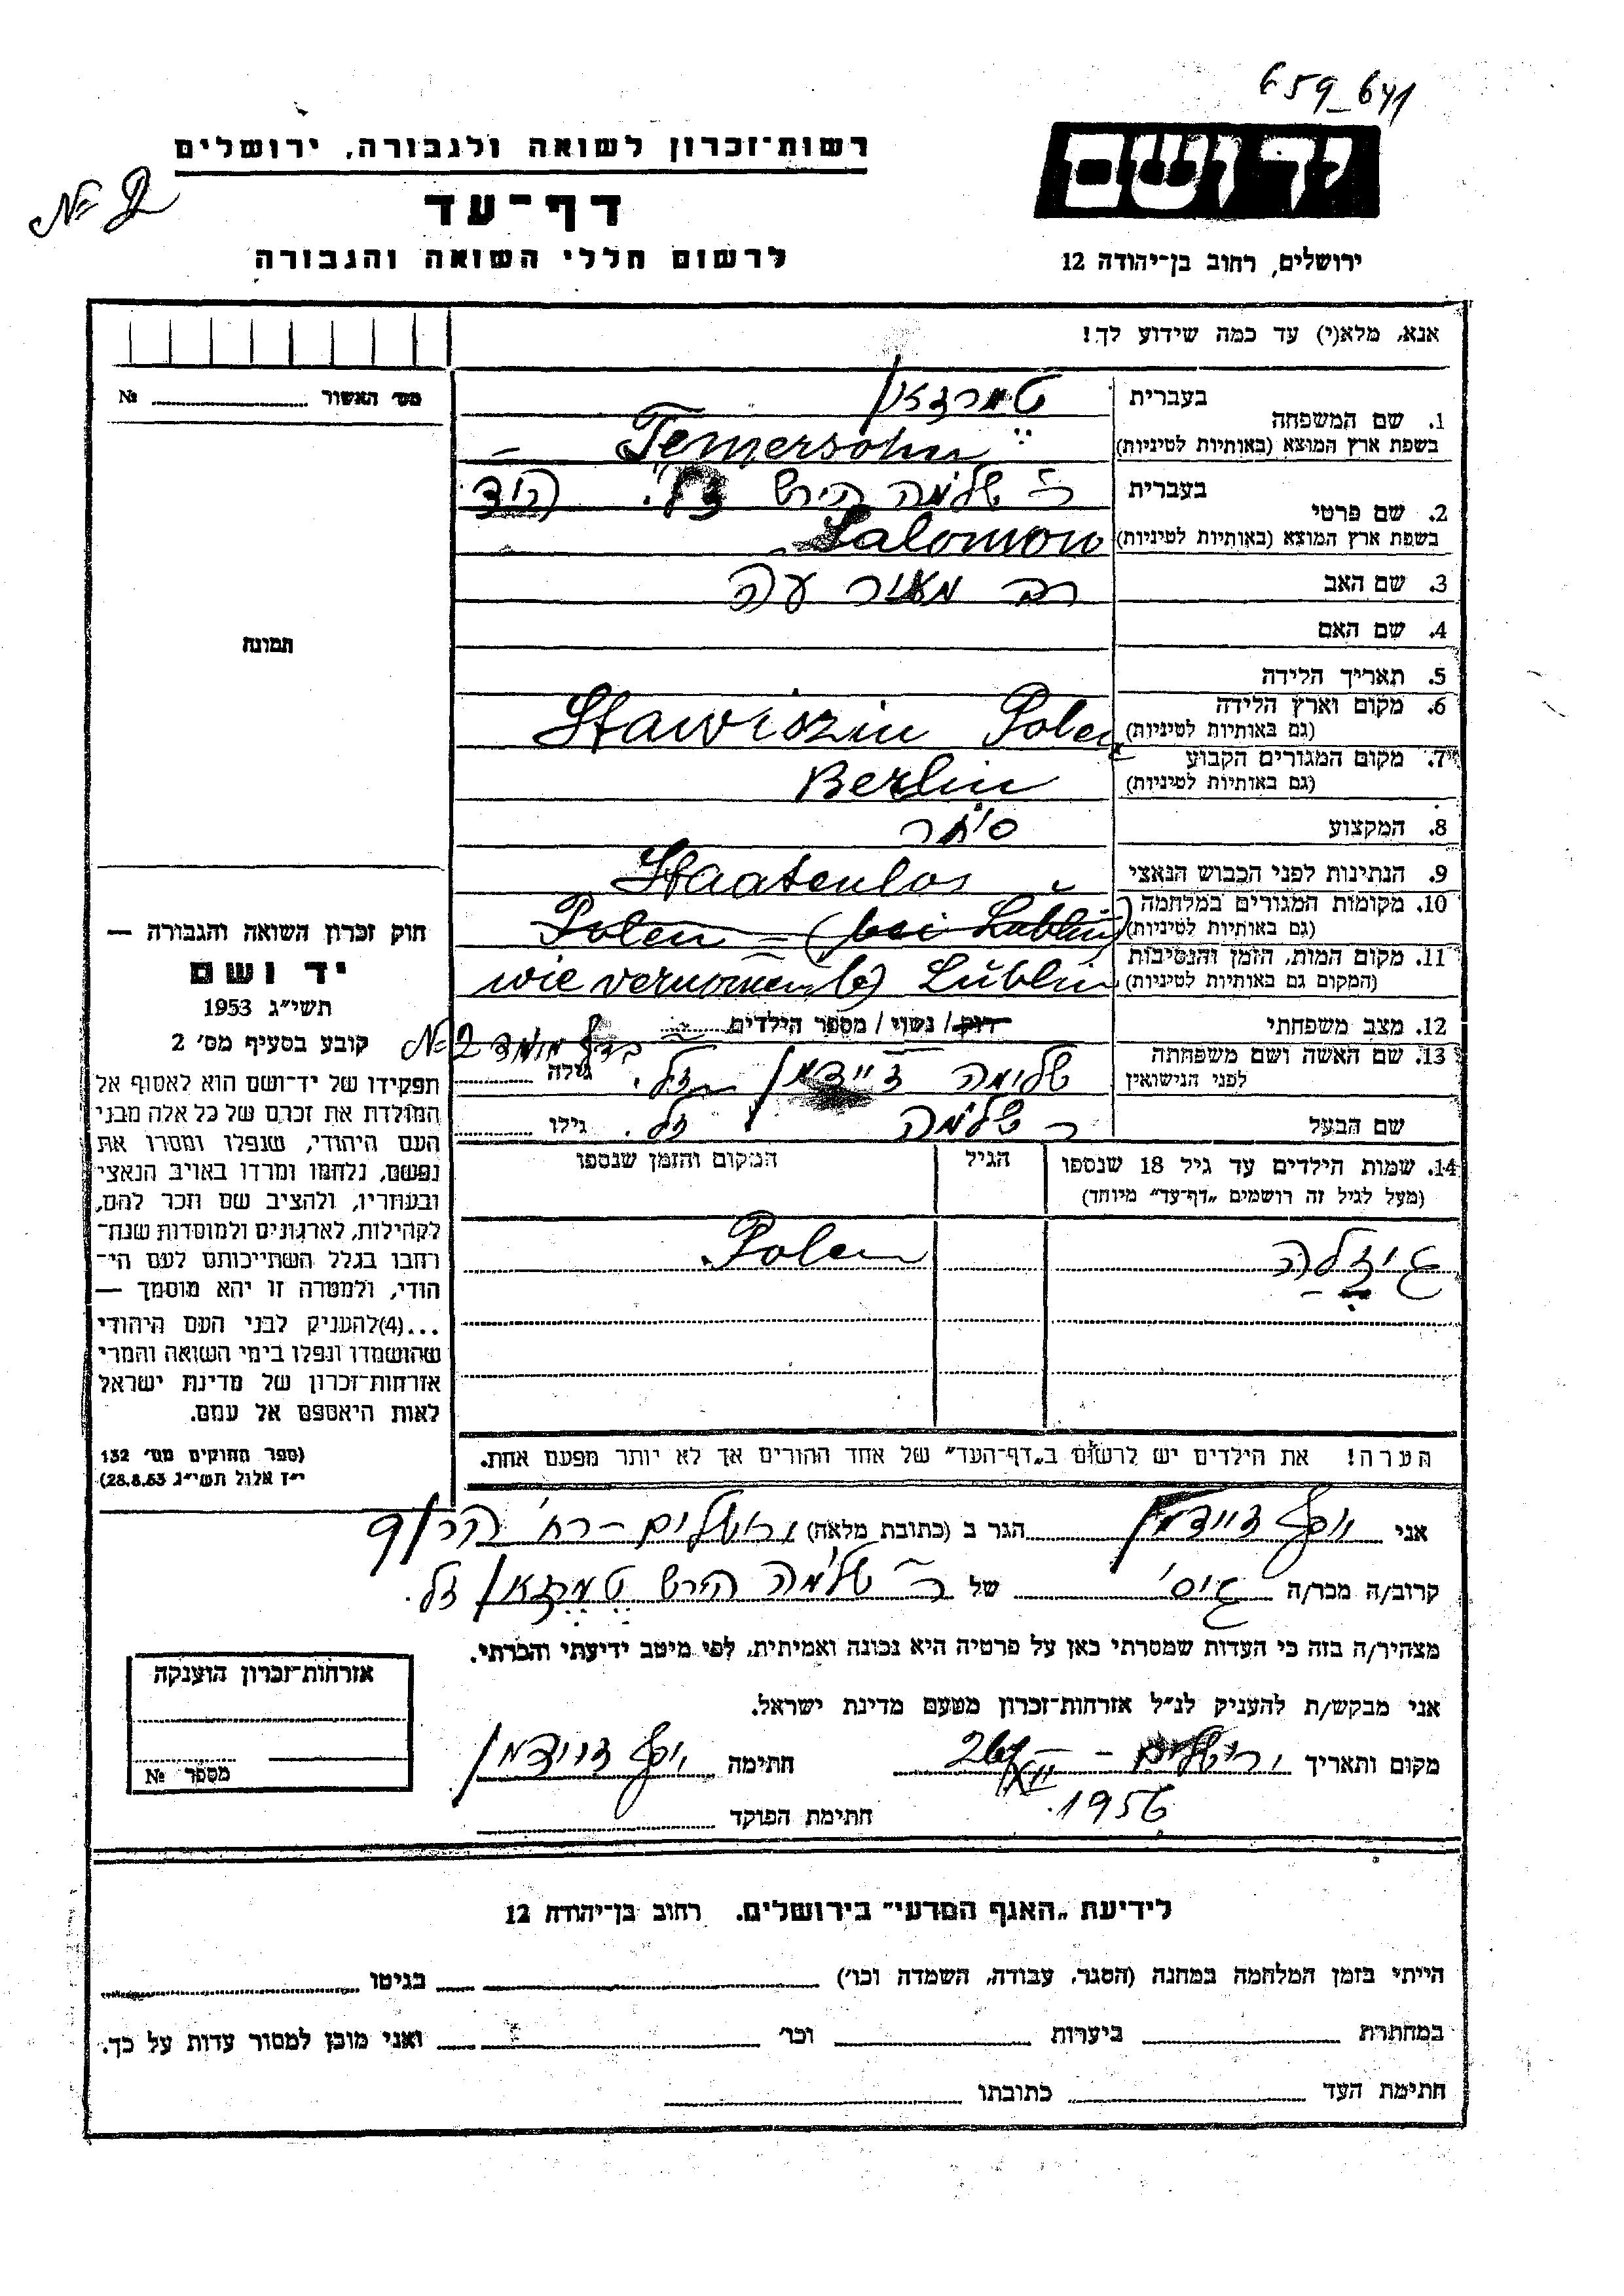 659_641
רשות־זכרון לשואה ולגבורה, ירושלים
יד ושם
№ 2
דף־עד
לרשום חללי השואה והגבורה
ירושלים, רחוב בן־יהודה 12
אנא, מלא(י) עד כמה שידוע לך!
מס׳ האשור № 
1. שם המשפחה
בעברית
טמרזאן
בשפת ארץ המוצא (באותיות לטיניות)
Temersohn –
2. שם פרטי
בעברית
ר׳ שלמה הירש ז״ל.
בשפת ארץ המוצא (באותיות לטיניות)
Salomon
3. שם האב
רב מאיר ע״ה
4. שם האם
5. תאריך הלידה
תמונה
6. מקום וארץ הלידה
(גם באותיות לטיניות)
Stawiszin Polen
7. מקום המגורים הקבוע
(גם באותיות לטיניות)
Berlin
8. המקצוע
סוחר
9. הנתינות לפני הכבוש הנאצי
Staatenlos
10. מקומות המגורים במלחמה
(גם באותיות לטיניות)
Polen – (bei Lublin)
11. מקום המות, הזמן והנסיבות
(המקום גם באותיות לטיניות)
wie vernommen Lublin
12. מצב משפחתי
רווק / נשוי / מספר הילדים
13. שם האשה ושם משפחתה
לפני הנישואין
ז״ל. גילה
№ 2
שם הבעל
ר׳ שלמה ז״ל. גילו
14. שמות הילדים עד גיל 18 שנספו
(מעל לגיל זה רושמים „דף־עד” מיוחד)
הגיל
המקום והזמן שנספו
גיזלה
Polen.
הערה! את הילדים יש לרשום ב„דף־העד” של אחד ההורים אך לא יותר מפעם אחת.
חוק זכרון השואה והגבורה —
יד ושם
תשי״ג 1953
קובע בסעיף מס׳ 2
תפקידו של יד־ושם הוא לאסוף אל
המולדת את זכרם של כל אלה מבני
העם היהודי, שנפלו ומסרו את
נפשם, נלחמו ומרדו באויב הנאצי
ובעוזריו, ולהציב שם וזכר להם,
לקהילות, לארגונים ולמוסדות שנח־
רבו בגלל השתייכותם לעם הי־
הודי, ולמטרה זו יהא מוסמך —
...(4)להעניק לבני העם היהודי
שהושמדו ונפלו בימי השואה והמרי
אזרחות־זכרון של מדינת ישראל
לאות היאספם אל עמם.
(ספר החוקים מס׳ 132
י״ז אלול תשי״ג 28.8.53)
אני הגר ב (כתובת מלאה) ירושלים – רח׳
קרוב/ה מכר/ה גיס׳ של ר׳ שלמה הירש טמרזאן ז״ל.
מצהיר/ה בזה כי העדות שמסרתי כאן על פרטיה היא נכונה ואמיתית, לפי מיטב ידיעתי והכרתי.
אני מבקש/ת להעניק לנ״ל אזרחות־זכרון מטעם מדינת ישראל.
מקום ותאריך ירושלים – 26/XII 1956. חתימה
חתימת הפוקד
אזרחות־זכרון הוענקה
מספר №
לידיעת „האגף המדעי” בירושלים. רחוב בן־יהודה 12
הייתי בזמן המלחמה במחנה (הסגר, עבודה, השמדה וכו׳) בגיטו
במחתרת ביערות וכו׳ ואני מוכן למסור עדות על כך.
חתימת העד כתובתו